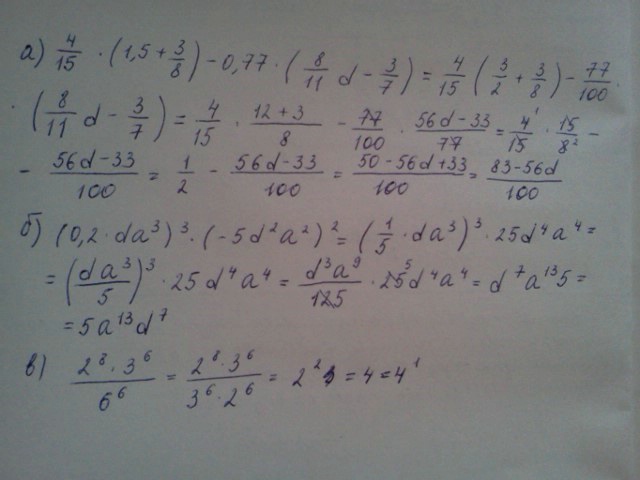 а) 4/15 · (1,5 + 3/8) - 0,77 · (8/11 d - 3/7) = 4/15 (3/2 + 3/8) - 77/100 ·
· (8/11 d - 3/7) = 4/15 · 12+3/8 - 77/100 · 56d-33/77 = 4¹/15 · 15/8² -
- 56d-33/100 = 1/2 - 56d-33/100 = 50-56d+33/100 = 83-56d/100
б) (0,2 · da³)³ · (-5d²a²)² = (1/5 · da³)³ · 25d⁴a⁴ =
= (da³/5)³ · 25d⁴a⁴ = d³a⁹/125 · 25⁵d⁴a⁴ = d⁷a¹³5 =
= 5a¹³d⁷
в) 2⁸ · 3⁶/6⁶ = 2⁸ · 3⁶/3⁶ · 2⁶ = 2² = 4 = 4¹